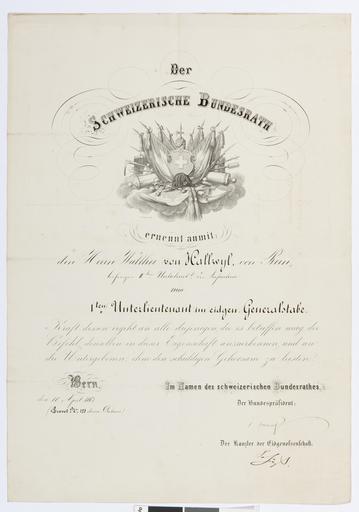 Der
Schweizerische Bundesrath
ernennt anmit:
den Herrn Walther von Hallwyl, von Bern,
zum
1ten Unterlieutenant im eidgen. Generalstabe.
Kraft dessen ergeht an alle diejenigen, die es betreffen mag, der
Befehl, denselben in dieser Eigenschaft anzuerkennen und an
die Untergebenen, dem den schuldigen Gehorsam zu leisten.
Bern,
den 10. April 186
Im Namen des schweizerischen Bundesrathes,
Der Bundespräsident:
Der Kanzler der Eidgenossenschaft: